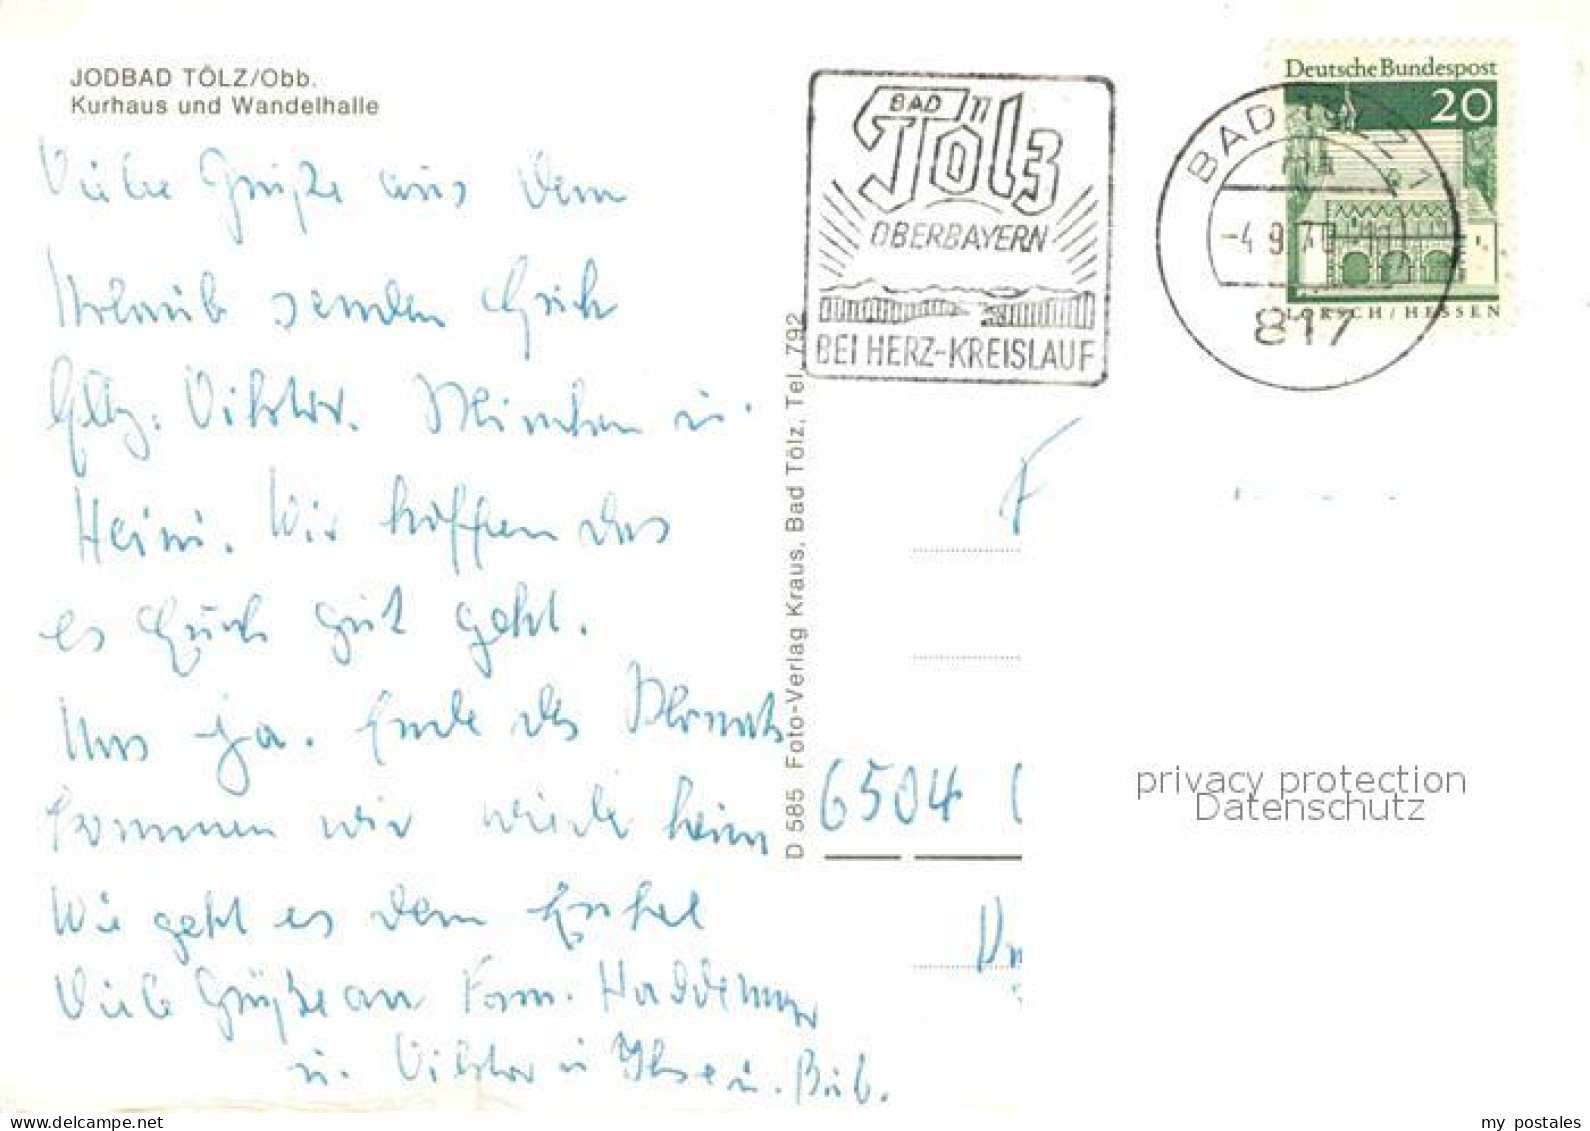 JODBAD TÖLZ/Obb.
Kurhaus und Wandelhalle
Viele Grüße aus dem
Urlaub senden Euch
Viktor. u.
Heini. Wir hoffen das
es Euch gut geht.
Uns ja. Ende des Monats
kommen wir wieder heim
Wie geht es dem Enkel
Viele Grüße an Fam.
u. Viktor u Ilse u. Bub.
D 585 Foto-Verlag Kraus, Bad Tölz, Tel. 792
BAD
Tölz
OBERBAYERN
BEI HERZ-KREISLAUF
Deutsche Bundespost
20
LORSCH/HESSEN
BAD TÖLZ 1
-4.9.
817
F
6504
privacy protection
Datenschutz
my postales